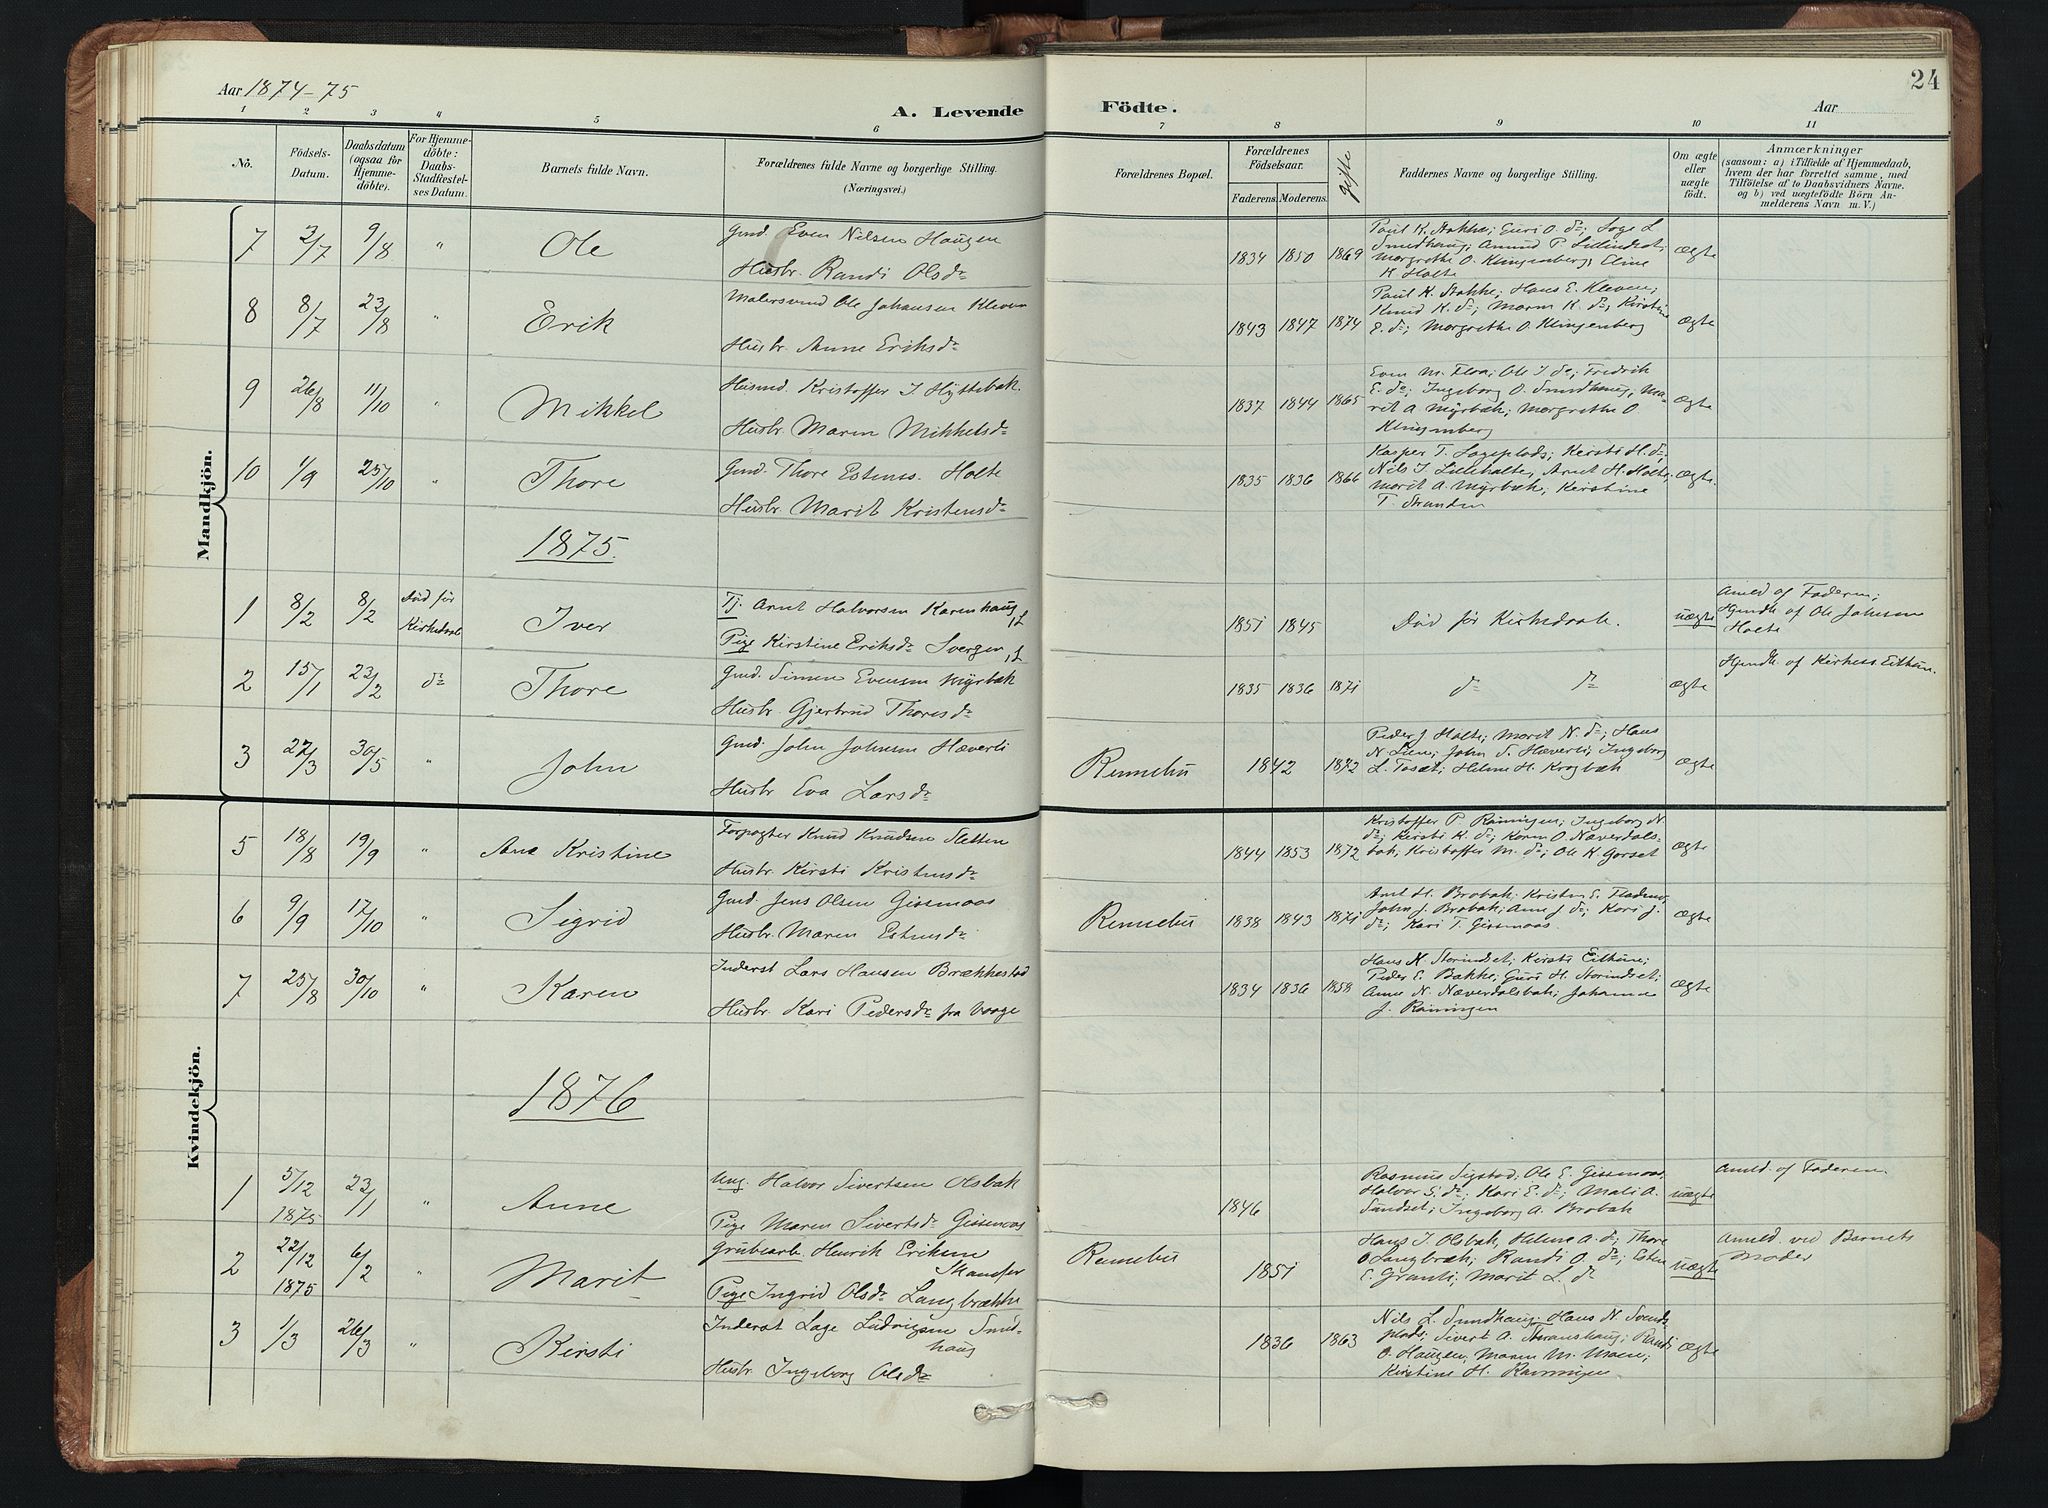 24
Aar 1874-75
A. Levende Födte.
Aar
1 2 3 4 5 6 7 8 9 10 11
No.
Födsels-Datum.
Daabsdatum (ogsaa for Hjemmedöbte).
For Hjemmedöbte: Daabs-Stadfæstelses Datum.
Barnets fulde Navn.
Forældrenes fulde Navne og borgerlige Stilling. (Næringsvei.)
Forældrenes Bopæl.
Forældrenes Födselsaar.
Faderens. Moderens.
Gifte
Faddernes Navne og borgerlige Stilling.
Om ægte eller uægte födt.
Anmærkninger
(saasom: a) i Tilfælde af Hjemmedaab, hvem der har forrettet samme, med Tilföielse af to Daabsvidners Navne. og b) ved uægtefödte Börn Anmelderens Navn m. V.)
Mandkjön.
7 2/7 9/8 " Ole
Gmd. Even Nilsen Haugen
Husbr. Randi Olsdr
1834 1850 1869
Paul K. Stokke; Guri O. dr; Lage L
Smedhaug; Amund P. Lillindset;
Margrethe O. Klingenberg; Eline
K. Holte
ægte
8 8/7 23/8 " Erik
Malersvend Ole Johansen Kleven
Husbr. Anne Eriksdr
1843 1847 1874
Paul K. Stokke; Hans E. Kleven;
Knud K. do; Maren K. do; Kirstine
E. do; Margrethe O. Klingenberg
ægte
9 26/8 11/10 " Mikkel
Husmd. Kristoffer J. Hyttebak.
Husbr. Maren Mikkelsdr
1837 1844 1865
Even M. Floa; Ole J do; Fredrik
E. do; Ingeborg O. Smedhaug; Ma-
rit A Myrbæk; Margrethe O.
Klingenberg
ægte
10 1/9 25/10 " Thore
Gmd. Thore Estens. Holte
Husbr. Marit Kristensdr
1835 1836 1866
Kasper T. Lageplads; Kersti H. do.
Nils J. Lilleholte, Arnt H. Holte;
Marit A. Myrbæk, Kerstine
T. Stranden
ægte.
1875.
1 8/2 8/2 Död før Kirkedaab Iver
Tj. Arnt Halvorsen Karenhaug, L
Pige Kirstine Eriksdr Svergen, L
1851 1845
Död før Kirkedaab.
uægte
Anmeld af Faderen;
Hjmdb. af Ole Johnsen
Holte
2 15/1 23/2 do Thore
Gmd. Simen Evensen Myrbæk
Husbr. Gjertrud Thoresdr
1835 1836 1871
do do
ægte
Hjmdb. af Kirkess Eithun.
3 27/3 30/5 " John
Gmd. John Johnsen Hæverli
Husbr. Eva Larsdr
Rennebu
1842 1872
Peder J Holte; Marit N. do; Hans
N. Lien; John S. Hæverli; Ingeborg
L. Toset; Helene H. Krogbæk
ægte
Kvindekjön.
5 18/8 19/9 " Ane Kristine
Forpagter Knud Knudsen Sletten
Husbr. Kirsti Kristensdr
1844 1853 1872
Kristoffer P. Rönningen; Ingeborg N
do; Kersti K. do; Karen O. Næverdals-
bak; Kristoffer M. do; Ole K Gorset
ægte
6 9/9 17/10 " Sigrid
Gmd. Jens Olsen Gissmoas
Husbr. Maren Estensdr
Rennebu
1838 1843 1871
Arnt H. Brobak; Kristen E.
John J. Brobak; Anne J do; Kari J.
do; Kari T. Gissmoas.
ægte
7 25/8 30/10 " Karen
Inderst Lars Hansen Brækkestad
Husbr. Kari Pedersdr fra Vaage
1834 1836 1858
Hans N. Storindset; Kersti Eithun;
Peder E. Bakke; Guri H. Storindset;
Anne N. Næverdalsbak; Johanne
J. Rönningen
ægte
1876
1 5/12 1875 23/1 " Anne
Ung. Halvor Sivertsen Olsbak
Pige Maren Sivertsdr Gissmoas
1846
Rasmus Sigstad; Ole E. Gissmoas,
Halvor S. do; Kari E. do; Mali A.
Sundset; Ingeborg A. Brobak
uægte
Anmld. af Faderen
2 22/12 1875 6/2 " Marit
Grubearb. Henrik Eriksen
Skamfer
Pige Ingrid Olsdr Langbrække
Rennebu
1851
Hans J. Olsbak, Helene A. do; Thore
O Langbræk; Randi O. do; Esten
E. Granli; Marit L. do
uægte
Anmeld. ved Barnets
Moder
3 1/3 26/3 " Kirsti
Inderst Lage Ludvigsen Smed-
haug
Husbr. Ingeborg Olsdr
1836 1863
Nils L. Smedhaug; Hans N. Svends
plads; Sivert A. Stranshaug; Randi
O. Haugen; Maren M. Moen;
Kirstine H. Rönningen.
ægte